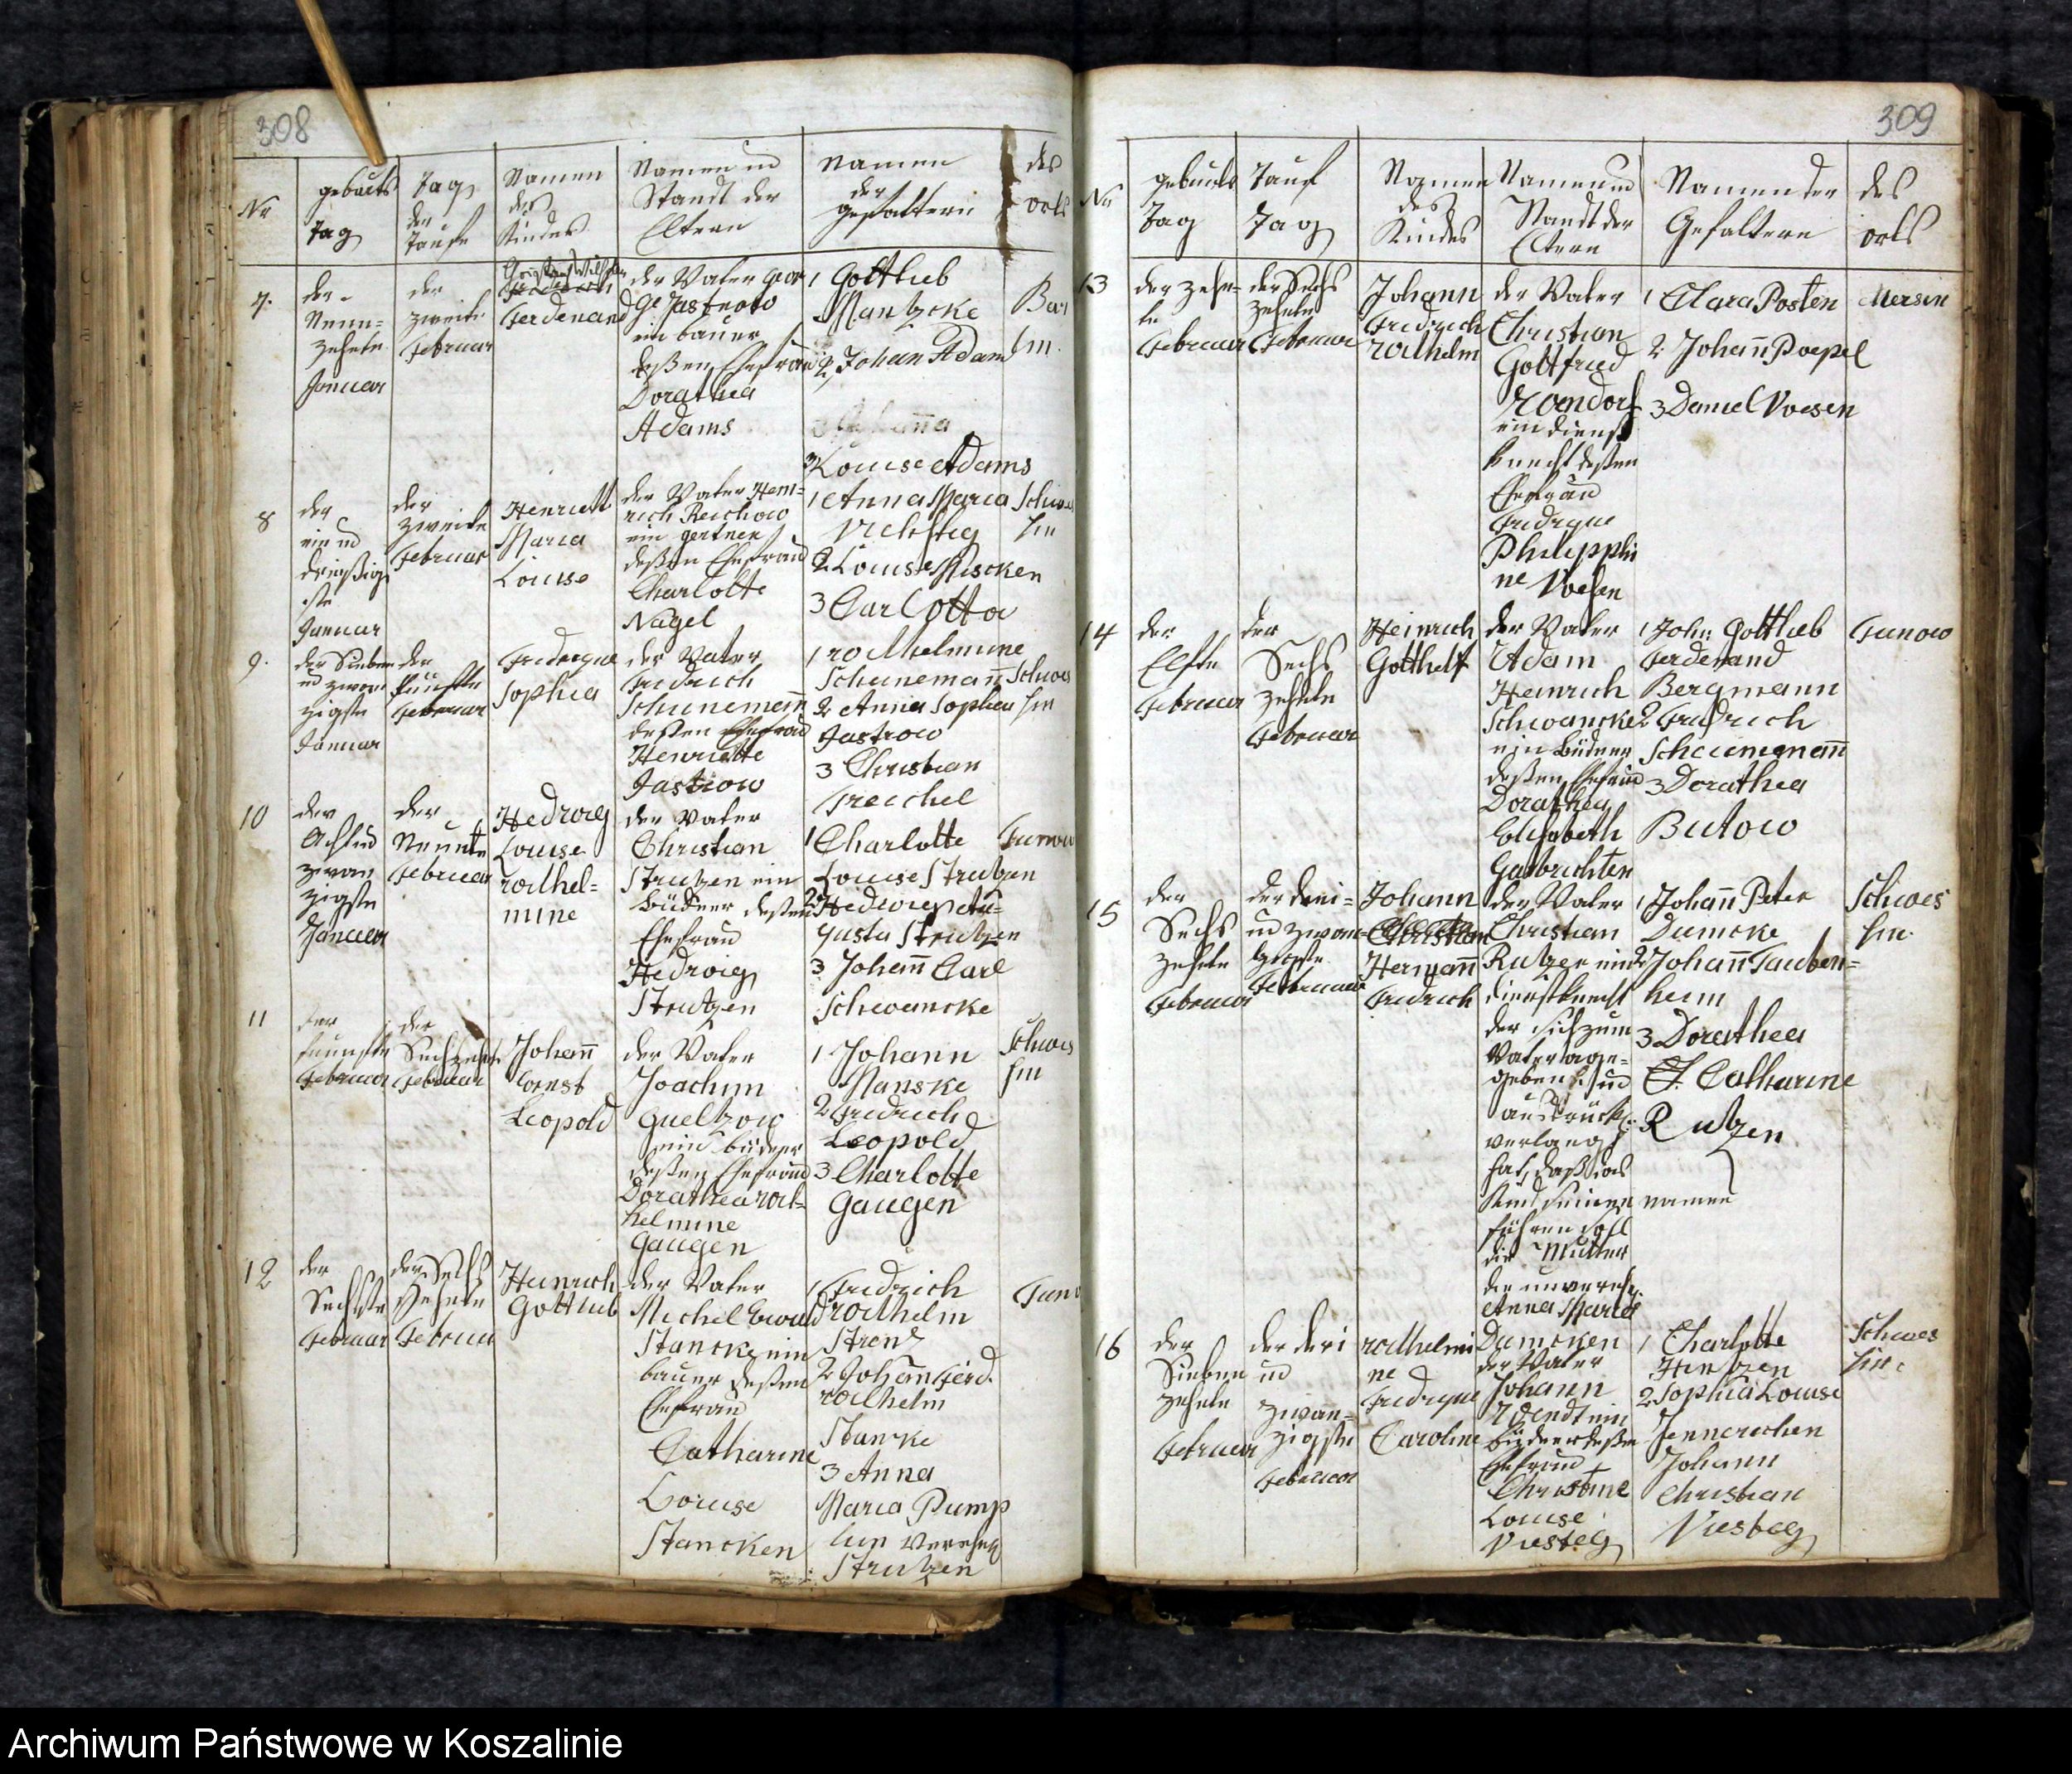 308
Nr
geburts
Tag
Tag
der
Taufe
Namen
des
Kindes
Namen und
Standt der
Eltern
Namen
der
gefattern
des
orts
7.
der
Neun=
zehnte
Januar
der
zweite
Februar
Ferdenand
der Vater Geor
ge Jastrow
ein bauer
deßen Ehefrau
Dorathea
Adams
1 Gottlieb
Mantzcke
2 Johan Adam
3 Louise Adams
8
der
ein und
dreißig
ste
Januar
der
zweite
Februar
Henriett
Maria
Louise
der Vater Hein=
rich Reichow
ein gertner
deßen Ehefrau
Charlotte
Nagel
1 Anna Maria
2 Louise Miscken
3 Carlotta
Schwes
sin
9.
der Sieben
und zwan
zigste
Januar
der
fünfte
Februar
Friderique
Sophia
der Vater
Fridrich
Schünemann
deßen Ehefrau
Henriette
Jastrow
1 Wilhelmine
Schünemann
2 Anna Sophia
Jastrow
3 Christian
Treichel
Schwes
sin
10
der
Acht und
zwan
zigste
Januar
der
Neunte
Februar
Hedwig
Louise
Wilhel=
mine
der Vater
Christian
Strutzen ein
büdner deßen
Ehefrau
Hedwig
Strutzen
1 Charlotte
Louise Strutzen
2 Hedwig Au=
gusta Strutzen
3 Johann Carl
Schwancke
Funow
11
der
fünfte
Februar
der
Sechzehnte
Februar
Johann
Ernst
Leopold
der Vater
Joachim
Gueltzow
ein büdner
deßen Ehefrau
Dorathea Wil=
helmine
Gaugen
1 Johann
Manske
2 Fridrich
Leopold
3 Charlotte
Gaugen
Schwes
sin
12
der
Sechste
Februar
der Sechs
zehnte
Februar
Heinrich
Gottlieb
der Vater
Michel Ewald
Stancke ein
bauer deßen
Ehefrau
Catharine
Louise
Stancken
1 Fridrich
Wilhelm
2 Johann Ferd.
Wilhelm
Stancke
3 Anna
Maria Pump
Strutzen
Funo
309
Nr
geburts
Tag
Tauf
Tag
Namen
des
Kindes
Namen und
Standt der
Eltern
Namen der
Gefattern
des
orts
13
der zehn=
te
Februar
der Sechs
zehnte
Februar
Johann
Fridrich
Wilhelm
der Vater
Christian
Gottfried
ein dienst
knecht deßen
Ehefrau
Fridrique
Philippin
ne Voesen
1 Clara Posten
2 Johann Poepel
3 Daniel Voesen
Mersin
14
der
Elfte
Februar
der
Sechs
zehnte
Februar
Heinrich
Gotthelf
der Vater
Adam
Heinrich
Schwancke
ein büdner
deßen Ehefrau
Dorathea
Elisabeth
1 Joh: Gottlieb
Ferdenand
Bergmann
2 Fridrich
Schünemann
3 Dorathea
Butow
Funow
15
der
Sechs
zehnte
Februar
der drei=
und zwan=
zigste
Februar
Johann
Christian
Hermann
Fridrich
der Vater
Christian
Rutzen ein
dienstknecht
der sich zum
Vater ange=
geben und
ausdrückl:
verlangt
hat, daß das
Kind seinen namen
führen soll
die Mutter
die unvereh.
Anna Maria
Dumcken
1 Johann Peter
Dumcke
2 Johann Tauben=
heim
3 Dorathea
E. Catharine
Rutzen
Schwes
sin.
16
der
Sieben
zehnte
Februar
der drei
und
zwan=
zigste
Februar
Wilhelmi
ne
Fridrique
Caroline
der Vater
Johann
Wendt ein
büdner deßen
Ehefrau
Christine
Louise
Viesteg
1 Charlotte
2 Sophia Louise
Johann
Christian
Viesteg
Schwes
sin
Archiwum Państwowe w Koszalinie